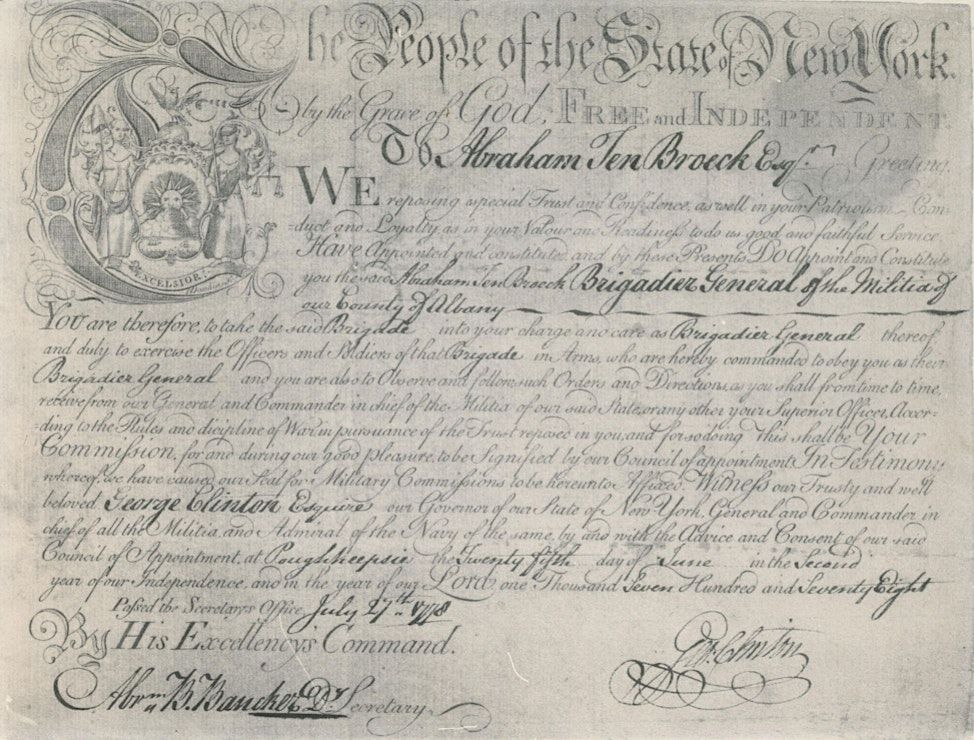 The People of the State of New York.
by the Grave of God, FREE and INDEPENDENT.
To Abraham Ten Broeck Esqr. Greeting,
WE reposing especial Trust and Confidence, as well in your Patriotism Con-
duct and Loyalty as in your Valour and Readiness to do us good and faithful Service
Have Appointed and constituted, and by these Presents Do Appoint and Constitute
you the said Abraham Ten Broeck Brigadier General of the Militia of
our County of Albany
EXCELSIOR
You are therefore, to take the said Brigade into your charge and care as Brigadier General thereof
and duly to exercise the Officers and Soldiers of that Brigade in Arms, who are hereby commanded to obey you as their
Brigadier General and you are also to Observe and follow such Orders and Directions, as you shall from time to time,
receive from our General and Commander in chief of the Militia of our said State, or any other your Superior Officer, Accor-
ding to the Rules and dicipline of War, in pursuance of the Trust reposed in you, and for so doing This shall be Your
Commission, for and during our good pleasure, to be Signified by our Council of appointment. In Testimony
whereof, we have caused our Seal for Military Commissions to be hereunto Affixed. Witness our Trusty and well
beloved George Clinton Esquire our Governor of our State of New York, General and Commander in
chief of all the Militia, and Admiral of the Navy of the same, by and with the Advice and Consent of our said
Council of Appointment, at Poughkeepsie the Twenty fifth day of June in the Second
year of our Independence, and in the year of our Lord, one Thousand Seven Hundred and Seventy Eight
Passed the Secretarys Office July 27th 1778
By His Excellencys Command.
Geo. Clinton
Abrm. B. Bancker Dy Secretary